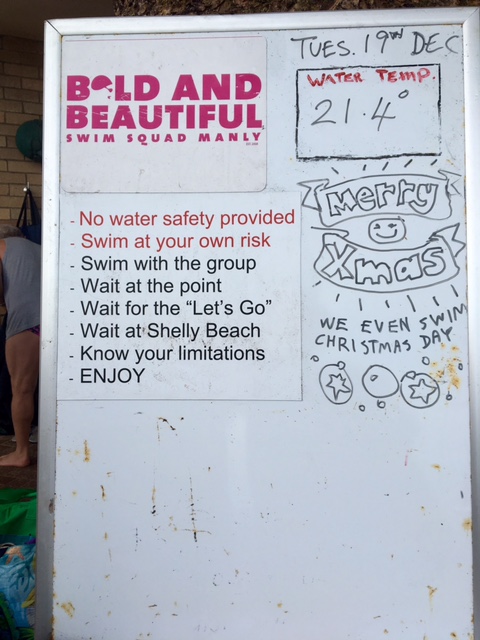 BOLD AND
BEAUTIFUL
SWIM SQUAD MANLY
TUES. 19TH DEC
WATER TEMP.
21.4°
- No water safety provided
- Swim at your own risk
- Swim with the group
- Wait at the point
- Wait for the “Let’s Go”
- Wait at Shelly Beach
- Know your limitations
- ENJOY
Merry
Xmas
WE EVEN SWIM
CHRISTMAS DAY